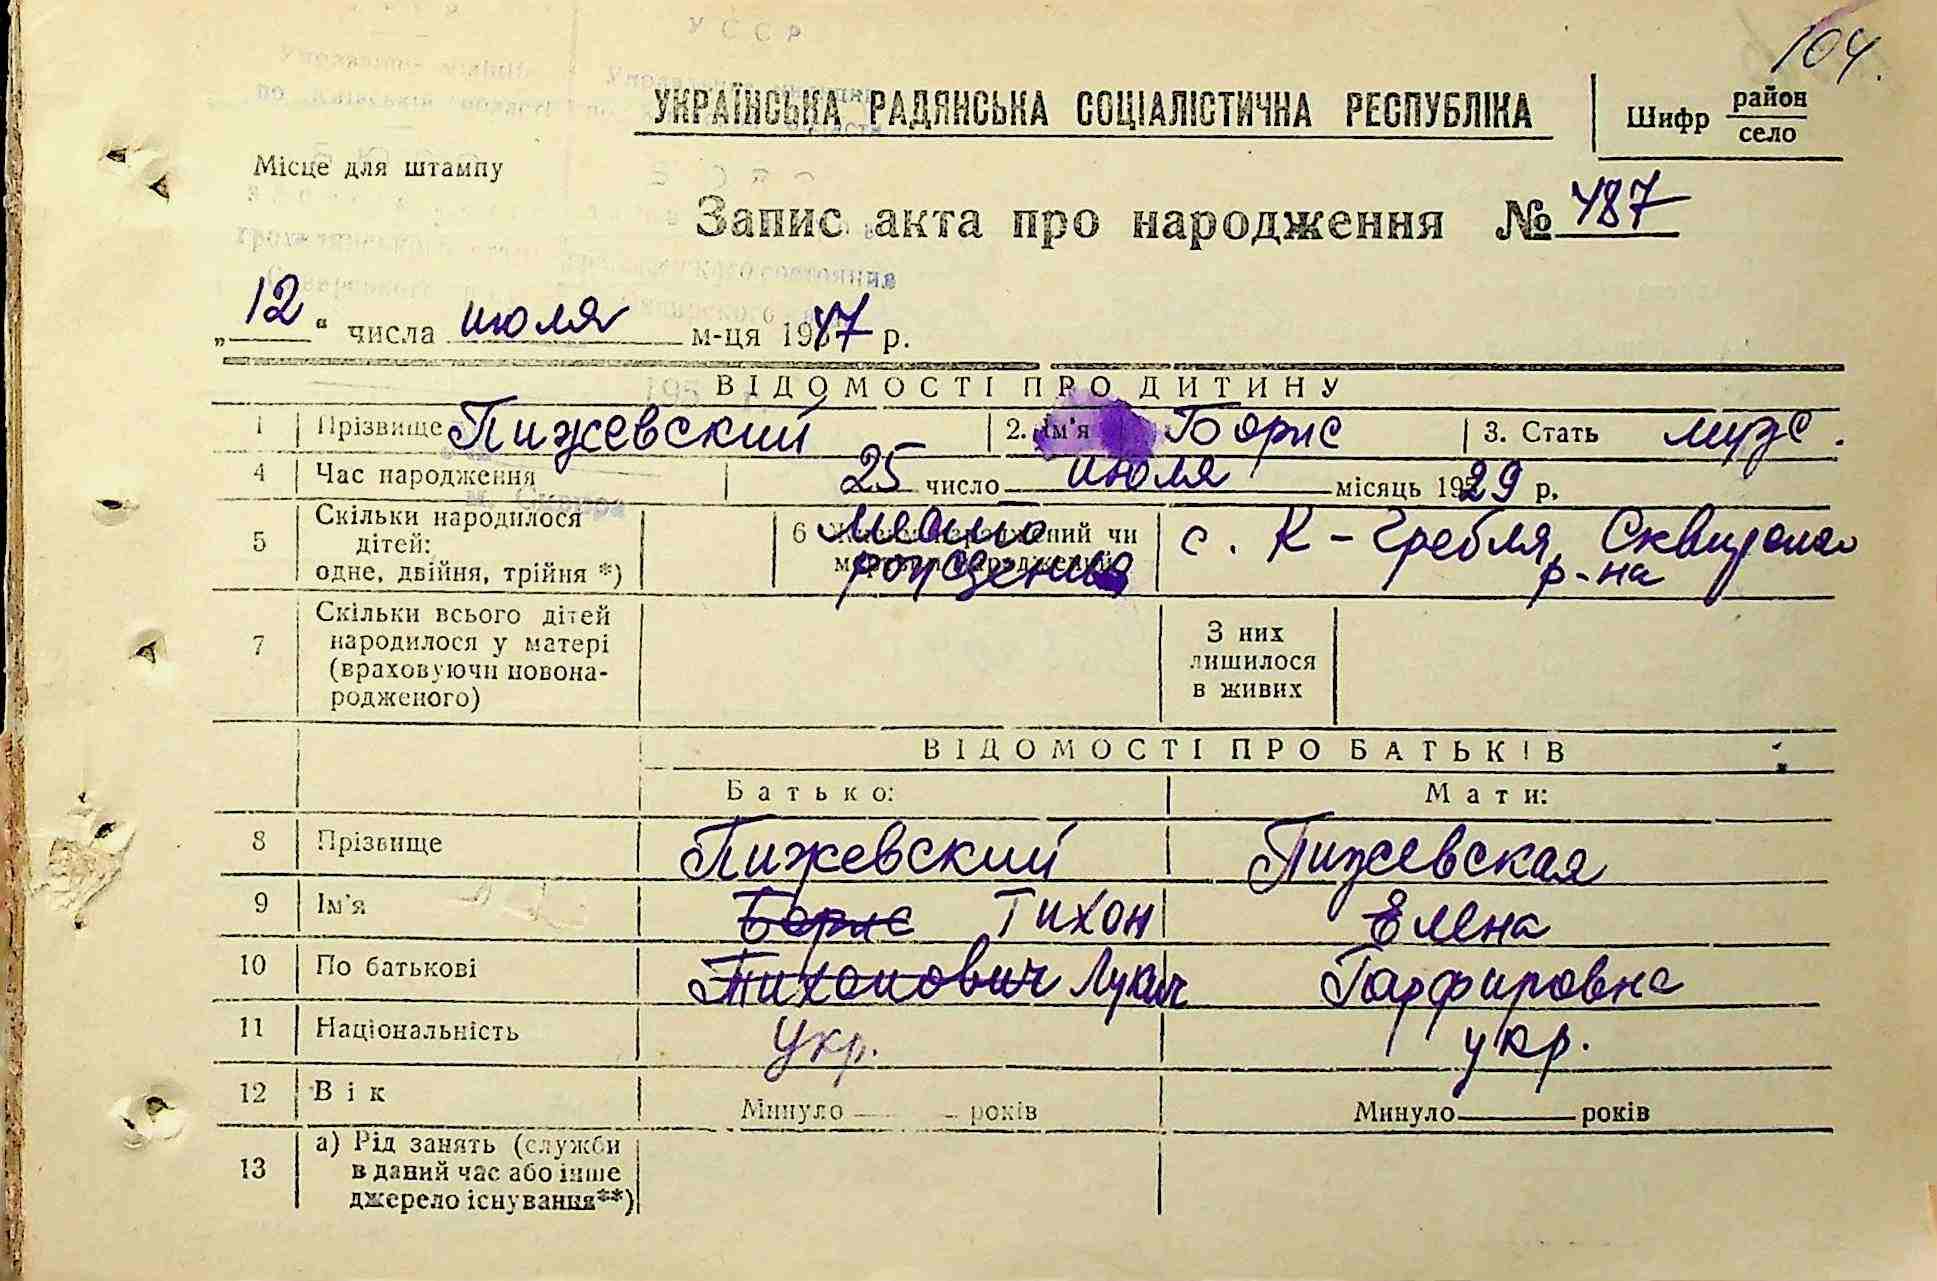 104.
У С С Р
УКРАЇНСЬКА РАДЯНСЬКА СОЦІАЛІСТИЧНА РЕСПУБЛІКА
Шифр район
село
Місце для штампу
Запис акта про народження № 487
„12“ числа июля м-ця 1947 р.
ВІДОМОСТІ ПРО ДИТИНУ
1 Прізвище Пижевский 2. Ім'я Борис 3. Стать муж.
4 Час народження 25 число июля місяць 1929 р.
5 Скільки народилося дітей: одне, двійня, трійня *) 6 Место рождения с. К-Гребля, Сквирского р-на
7 Скільки всього дітей народилося у матері (враховуючи новонародженого) З них лишилося в живих
ВІДОМОСТІ ПРО БАТЬКІВ
Батько: Мати:
8 Прізвище Пижевский Пижевская
9 Ім'я Борис Тихон Елена
10 По батькові Тихонович Лукич Парфировна
11 Національність Укр. укр.
12 Вік Минуло років Минуло років
13 а) Рід занять (служби
в даний час або інше
джерело існування**)